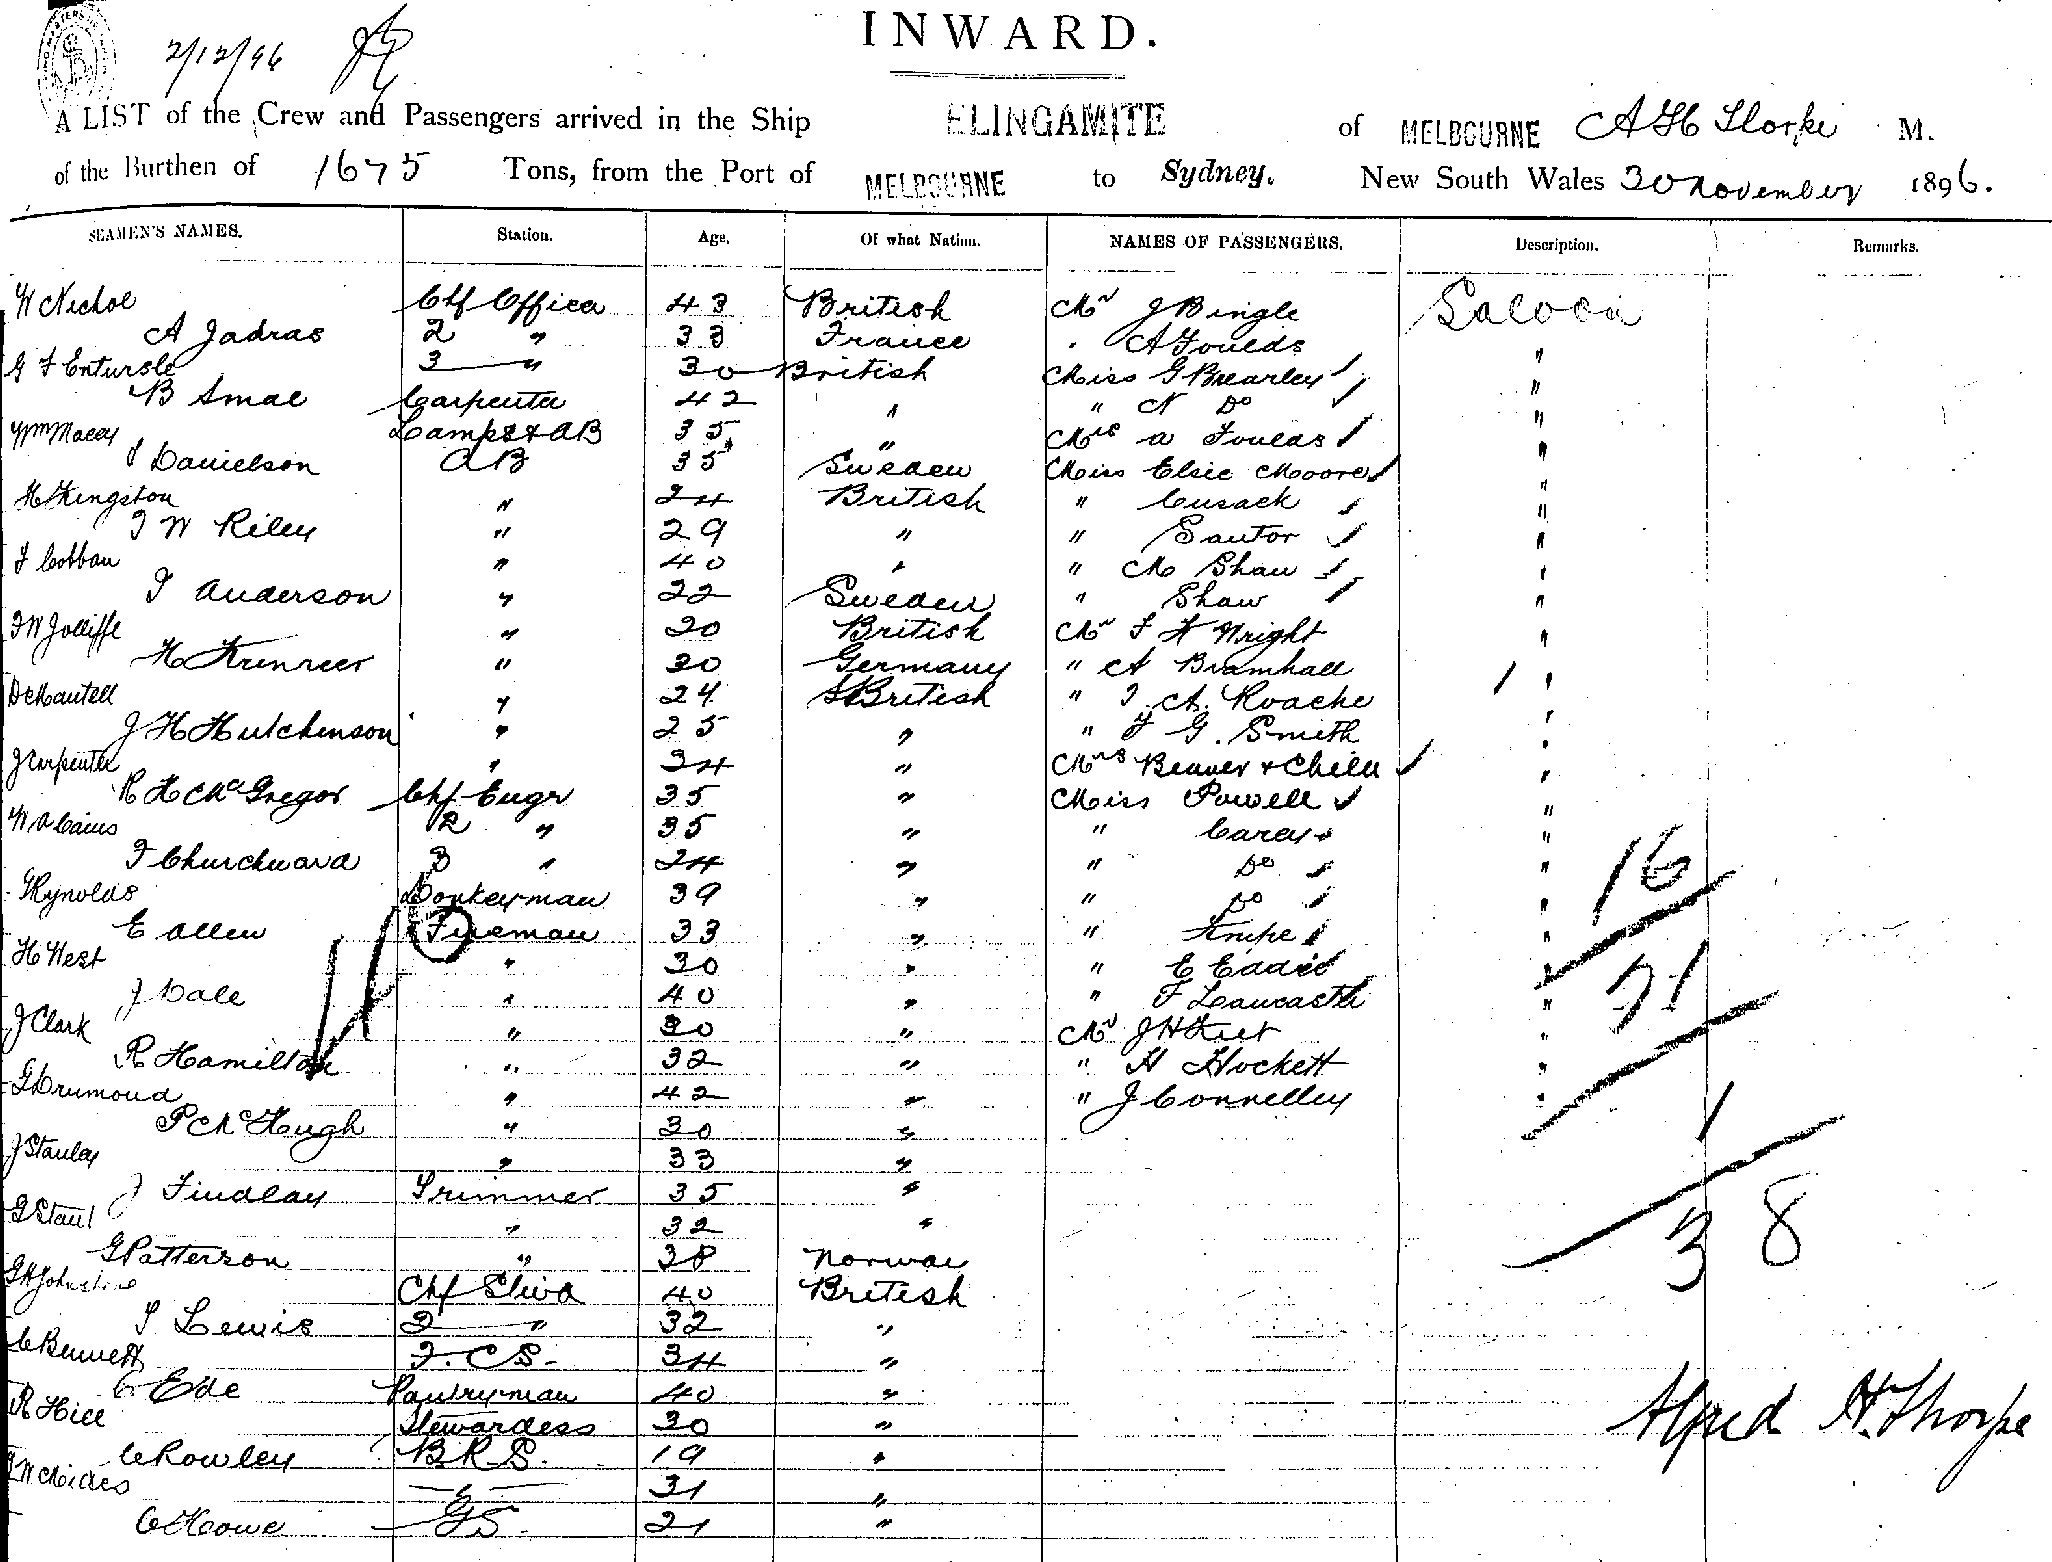 2/12/96
INWARD.
A LIST of the Crew and Passengers arrived in the Ship ELINGAMITE of MELBOURNE A H Thorpe M.
of the Burthen of 1675 Tons, from the Port of MELBOURNE to Sydney. New South Wales 30 November 1896.
SEAMEN'S NAMES. Station. Age. Of what Nation. NAMES OF PASSENGERS. Description. Remarks.
W Nichol Chf Officer 43 British Mr J Bingle Saloon
A Jadras 2 " 33 France " A Foulds "
G F Entwisle 3 " 30 British Miss G Brearley "
B Smal Carpenter 42 " " N Do "
Wm Macey Lamps & AB 35 " Mrs A Foulds "
J Danielson AB 35 Sweden Miss Elsie Moore "
H Kingston " 24 British " Cusack "
J W Riley " 29 " " Santor "
J Cobban " 40 " " M Shaw "
J Anderson " 22 Sweden " Shaw "
J W Jolliffe " 20 British Mr F H Wright "
H " 20 Germany " A Bramhall "
D Mantell " 24 British " J. A. Roache "
J H Hutchinson " 25 " " F G. Smith "
J Carpenter " 34 " Mrs Beaver & Child "
R H McGregor Chf Engr 35 " Miss Powell "
W A Cairns 2 " 35 " " Carey "
J Churchward 3 " 24 " " Do " 16
G Rynolds Donkeyman 39 " " Do "
E Allen Fireman 33 " " Knipe "
H West " 30 " " E Eadie " 21
J Dale " 40 " " F Lancaster "
J Clark " 30 " Mr J H "
R Hamilton " 32 " " H Hockett "
G Drumond " 42 " " J Connelley "
P McHugh " 30 " 1
J Stanley " 33 "
J Findlay Trimmer 35 "
" 32 " 38
G Patterson " 38 Norwae
G H Johnstone Chf Stwd 40 British
J Lewis 2 " 32 "
C Bennett F.C.S. 34 "
C Ede Pantryman 40 "
R Hill Stewardess 30 " Alfred H. Thorpe
C Rowley B.R.S. 19 "
31 "
C Howe GS. 21 "